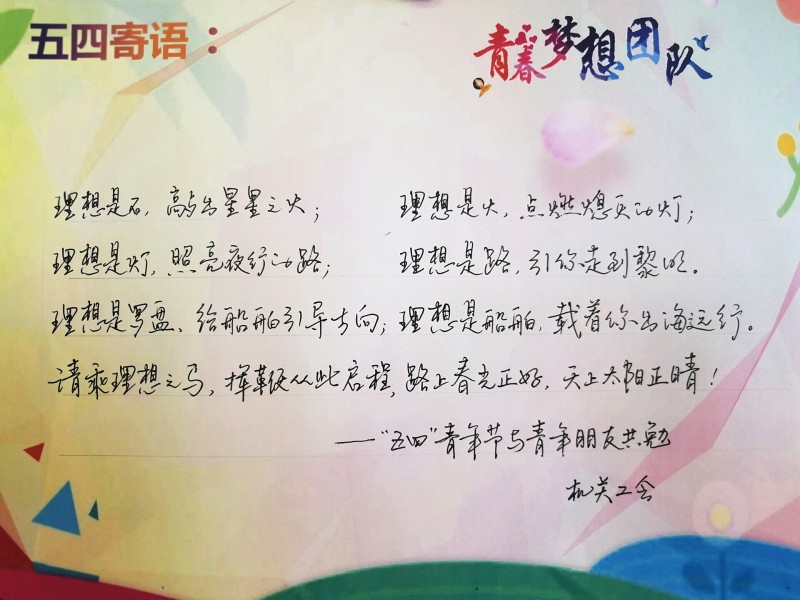 五四寄语：
青春梦想团队
理想是石，敲出星星之火；　理想是火，点燃熄灭的灯；
理想是灯，照亮夜行的路；　理想是路，引你走到黎明。
理想是罗盘、给船舶引导方向；理想是船舶，载着你出海远行。
请乘理想之马，挥鞭从此启程，路上春光正好，天上太阳正晴！
——“五四”青年节与青年朋友共勉
机关工会